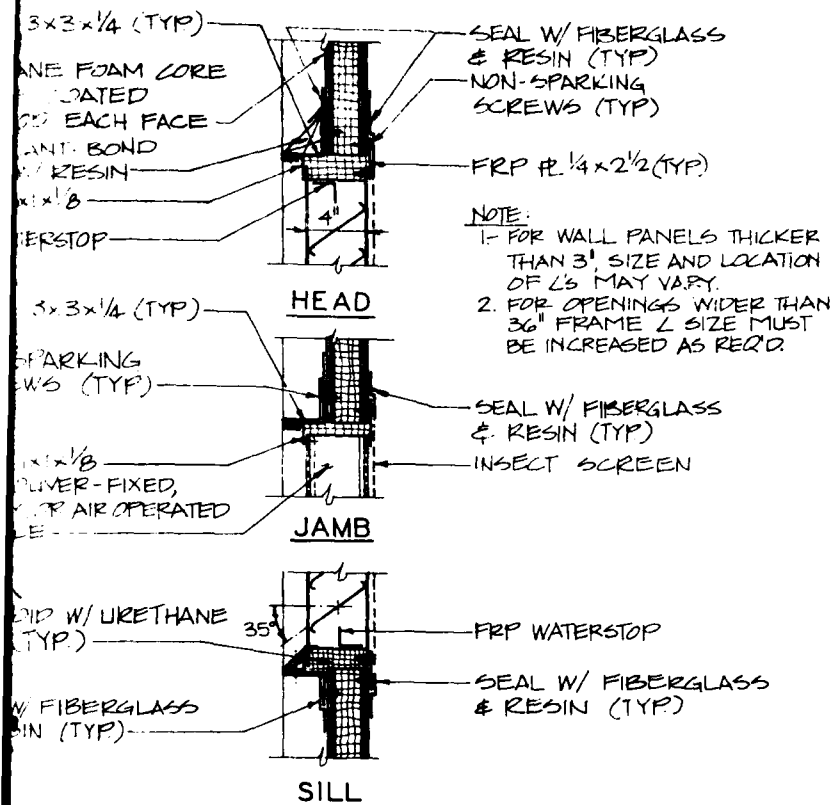 3x3x1/4 (TYP)
FOAM CORE
EACH FACE
BOND
RESIN
4"
HEAD
SEAL W/ FIBERGLASS
& RESIN (TYP)
NON-SPARKING
SCREWS (TYP)
FRP PL 1/4 x 2 1/2 (TYP.)
NOTE:
1- FOR WALL PANELS THICKER
THAN 3", SIZE AND LOCATION
OF L'S MAY VARY.
2. FOR OPENINGS WIDER THAN
36" FRAME L SIZE MUST
BE INCREASED AS REQ'D.
3x3x1/4 (TYP)
(TYP)
AIR OPERATED
JAMB
SEAL W/ FIBERGLASS
& RESIN (TYP)
INSECT SCREEN
W/ URETHANE
(TYP.)
35°
W/ FIBERGLASS
(TYP)
SILL
FRP WATERSTOP
SEAL W/ FIBERGLASS
& RESIN (TYP)